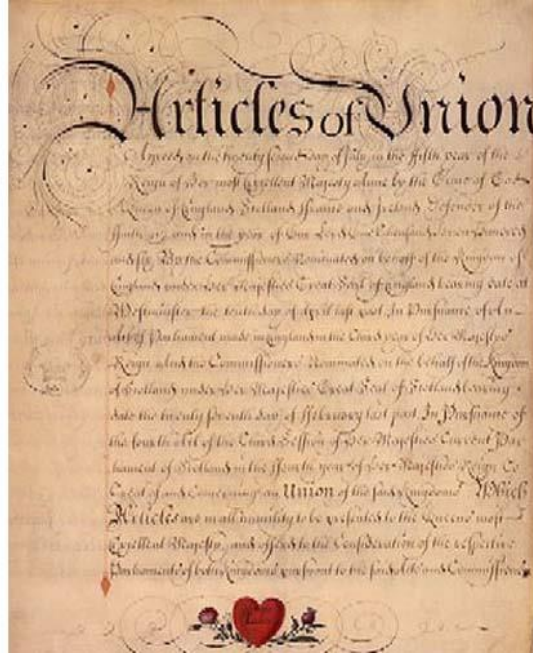 Articles of Union
Agreed on the twenty second day of July in the fifth year of the
Reign of Her most Excellent Majesty Anne by the Grace of God
Queen of England Scotland France and Ireland Defender of the
Faith &c and in the year of Our Lord One thousand Seven hundred
and six By the Commissioners Nominated on behalf of the Kingdom of
England under Her Majesties Great Seal of England bearing date at
Westminster the tenth day of April last past In Pursuance of an
Act of Parliament made in England in the third year of Her Majestys
Reign and the Commissioners Nominated on the behalf of the Kingdom
of Scotland under Her Majesties Great Seal of Scotland bearing
date the twenty seventh day of February last past In Pursuance of
the fourth Act of the third Session of Her Majesties Current Par
liament of Scotland in the fourth year of Her Majesties Reign to
Treat of and Concerning an Union of the said Kingdoms Which
Articles are in all humility to be presented to the Queens most
Excellent Majesty and offered to the Consideration of the respective
Parliaments of both Kingdoms pursuant to the said Acts and Commissions